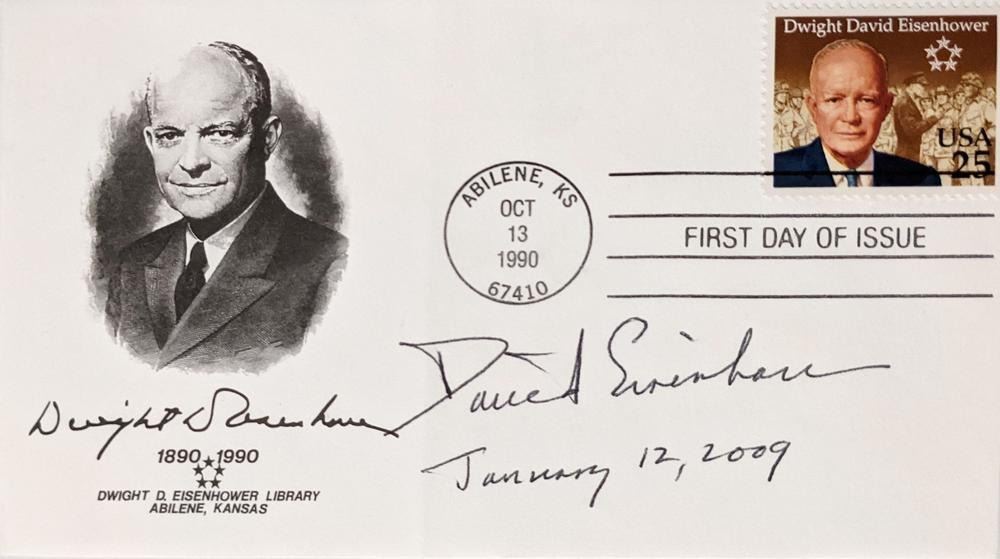 Dwight David Eisenhower
USA
25
ABILENE, KS
OCT
13
1990
67410
FIRST DAY OF ISSUE
David Eisenhower
January 12, 2009
Dwight D Eisenhower
1890 1990
DWIGHT D. EISENHOWER LIBRARY
ABILENE, KANSAS